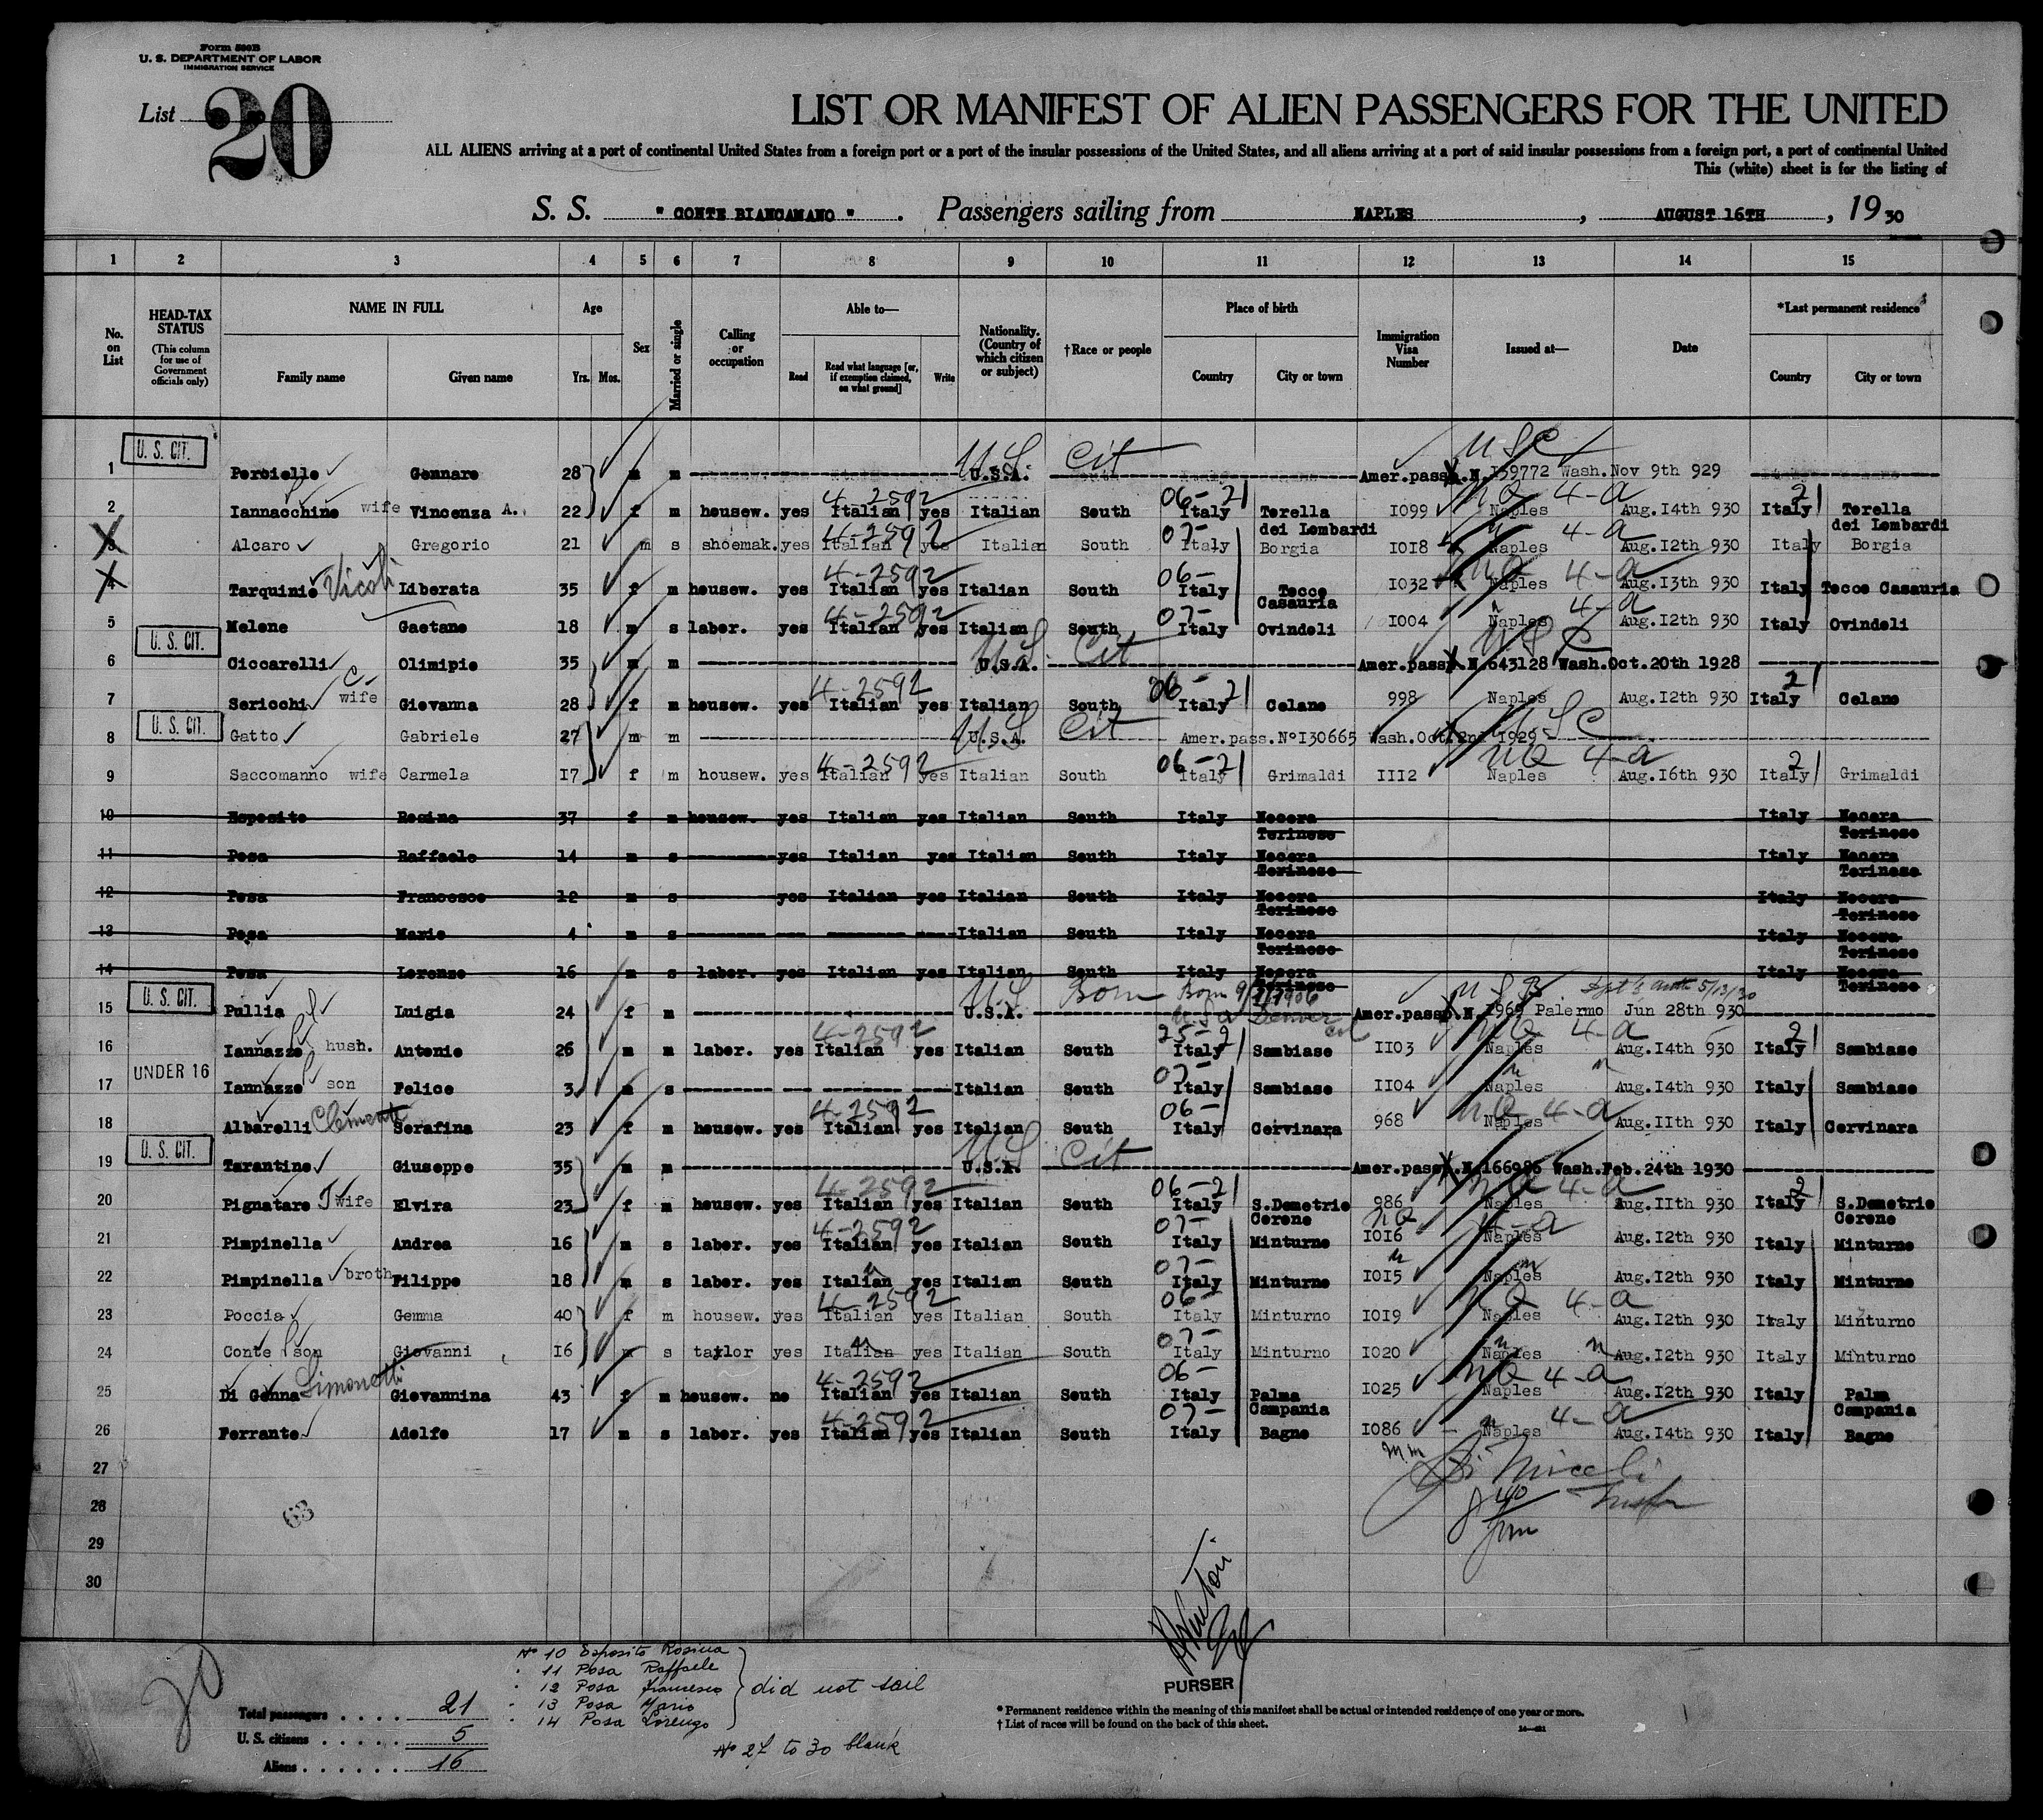 Form 500B
U. S. DEPARTMENT OF LABOR
IMMIGRATION SERVICE
List 20
LIST OR MANIFEST OF ALIEN PASSENGERS FOR THE UNITED
ALL ALIENS arriving at a port of continental United States from a foreign port or a port of the insular possessions of the United States, and all aliens arriving at a port of said insular possessions from a foreign port, a port of continental United
This (white) sheet is for the listing of
S. S. " CONTE BIANCAMANO " . Passengers sailing from NAPLES , AUGUST 16TH , 19 30
1 2 3 4 5 6 7 8 9 10 11 12 13 14 15
No. on List
HEAD-TAX STATUS (This column for use of Government officials only)
NAME IN FULL Family name Given name
Age Yrs. Mos.
Sex
Married or single
Calling or occupation
Able to— Read Read what language [or, if exemption claimed, on what ground] Write
Nationality. (Country of which citizen or subject)
†Race or people
Place of birth Country City or town
Immigration Visa Number
Issued at—
Date
*Last permanent residence Country City or town
U. S. CIT. U S Cit U S C
1 Porcielle Gennaro 28 m m U.S.A. Amer.passp.N.159772 Wash.Nov 9th 929
4-2592 06-21 NQ 4-a 21
2 Iannacchino wife Vincenza A. 22 f m housew. yes Italian yes Italian South Italy Torella dei Lombardi 1099 Naples Aug.14th 930 Italy Torella dei Lombardi
4-2592 07- " 4-a
X 3 Alcaro Gregorio 21 m s shoemak. yes Italian yes Italian South Italy Borgia 1018 Naples Aug.12th 930 Italy Borgia
4-2592 06- NQ 4-a
X 4 Tarquinio Vicoli Liberata 35 f m housew. yes Italian yes Italian South Italy Tocco Casauria 1032 Naples Aug.13th 930 Italy Tocco Casauria
4-2592 07- " 4-a
5 Melone Gaetano 18 m s labor. yes Italian yes Italian South Italy Ovindoli 1004 Naples Aug.12th 930 Italy Ovindoli
U. S. CIT. U S Cit U S C
6 Ciccarelli Olimipio 35 m m U.S.A. Amer.passp.N.643128 Wash.Oct.20th 1928
C 4-2592 06-21 21
7 Sericchi wife Giovanna 28 f m housew. yes Italian yes Italian South Italy Celano 998 Naples Aug.12th 930 Italy Celano
U. S. CIT. U S Cit U S C
8 Gatto Gabriele 27 m m U.S.A. Amer.pass.N°130665 Wash.Oct.2nd 1929
4-2592 06-21 NQ 4-a 21
9 Saccomanno wife Carmela 17 f m housew. yes Italian yes Italian South Italy Grimaldi 1112 Naples Aug.16th 930 Italy Grimaldi
10 Esposito Rosina 37 f m housew. yes Italian yes Italian South Italy Nocera Terinese Italy Nocera Terinese
11 Posa Raffaele 14 m s yes Italian yes Italian South Italy Nocera Terinese Italy Nocera Terinese
12 Posa Francesco 12 m s yes Italian yes Italian South Italy Nocera Terinese Italy Nocera Terinese
13 Posa Mario 4 m s Italian South Italy Nocera Terinese Italy Nocera Terinese
14 Posa Lorenzo 16 m s labor. yes Italian yes Italian South Italy Nocera Terinese Italy Nocera Terinese
U. S. CIT. U S Born Born 9/7/1906 U S A Denver Col U S B
15 Pullia Luigia 24 f m U.S.A. Amer.passp.N.1969 Palermo Jun 28th 930
4-2592 25-21 NQ 4-a 21
16 Iannazzo hush. Antonio 26 m m labor. yes Italian yes Italian South Italy Sambiase 1103 Naples Aug.14th 930 Italy Sambiase
UNDER 16 07- " "
17 Iannazzo son Felice 3 m s Italian South Italy Sambiase 1104 Naples Aug.14th 930 Italy Sambiase
4-2592 06- NQ 4-a
18 Albarelli Clemente Serafina 23 f m housew. yes Italian yes Italian South Italy Cervinara 968 Naples Aug.11th 930 Italy Cervinara
U. S. CIT. U S Cit
19 Tarantino Giuseppe 35 m m U.S.A. Amer.passp.N.166986 Wash.Feb.24th 1930
4-2592 06-21 NQ 4-a 21
20 Pignataro T wife Elvira 23 f m housew. yes Italian yes Italian South Italy S.Demetrio Corone 986 Naples Aug.11th 930 Italy S.Demetrio Corone
4-2592 07- NQ 4-a
21 Pimpinella Andrea 16 m s labor. yes Italian yes Italian South Italy Minturno 1016 Naples Aug.12th 930 Italy Minturno
" 07- " "
22 Pimpinella broth. Filippo 18 m s labor. yes Italian yes Italian South Italy Minturno 1015 Naples Aug.12th 930 Italy Minturno
4-2592 06- NQ 4-a
23 Poccia Gemma 40 f m housew. yes Italian yes Italian South Italy Minturno 1019 Naples Aug.12th 930 Italy Minturno
" 07- " "
24 Conte son Giovanni 16 m s taylor yes Italian yes Italian South Italy Minturno 1020 Naples Aug.12th 930 Italy Minturno
4-2592 06- NQ 4-a
25 Di Genna Simonetti Giovannina 43 f m housew. no Italian yes Italian South Italy Palma Campania 1025 Naples Aug.12th 930 Italy Palma Campania
4-2592 07- " 4-a
26 Ferrante Adolfo 17 m s labor. yes Italian yes Italian South Italy Bagno 1086 Naples Aug.14th 930 Italy Bagno
27
28
29
30
63
PURSER
20
Nº 10 Esposito Rosina
" 11 Posa Raffaele
" 12 Posa Francesco
" 13 Posa Mario
" 14 Posa Lorenzo
did not sail
Nº 27 to 30 blank
Total passengers . . . . 21
U. S. citizens . . . . . 5
Aliens . . . . . . 16
* Permanent residence within the meaning of this manifest shall be actual or intended residence of one year or more.
† List of races will be found on the back of this sheet.